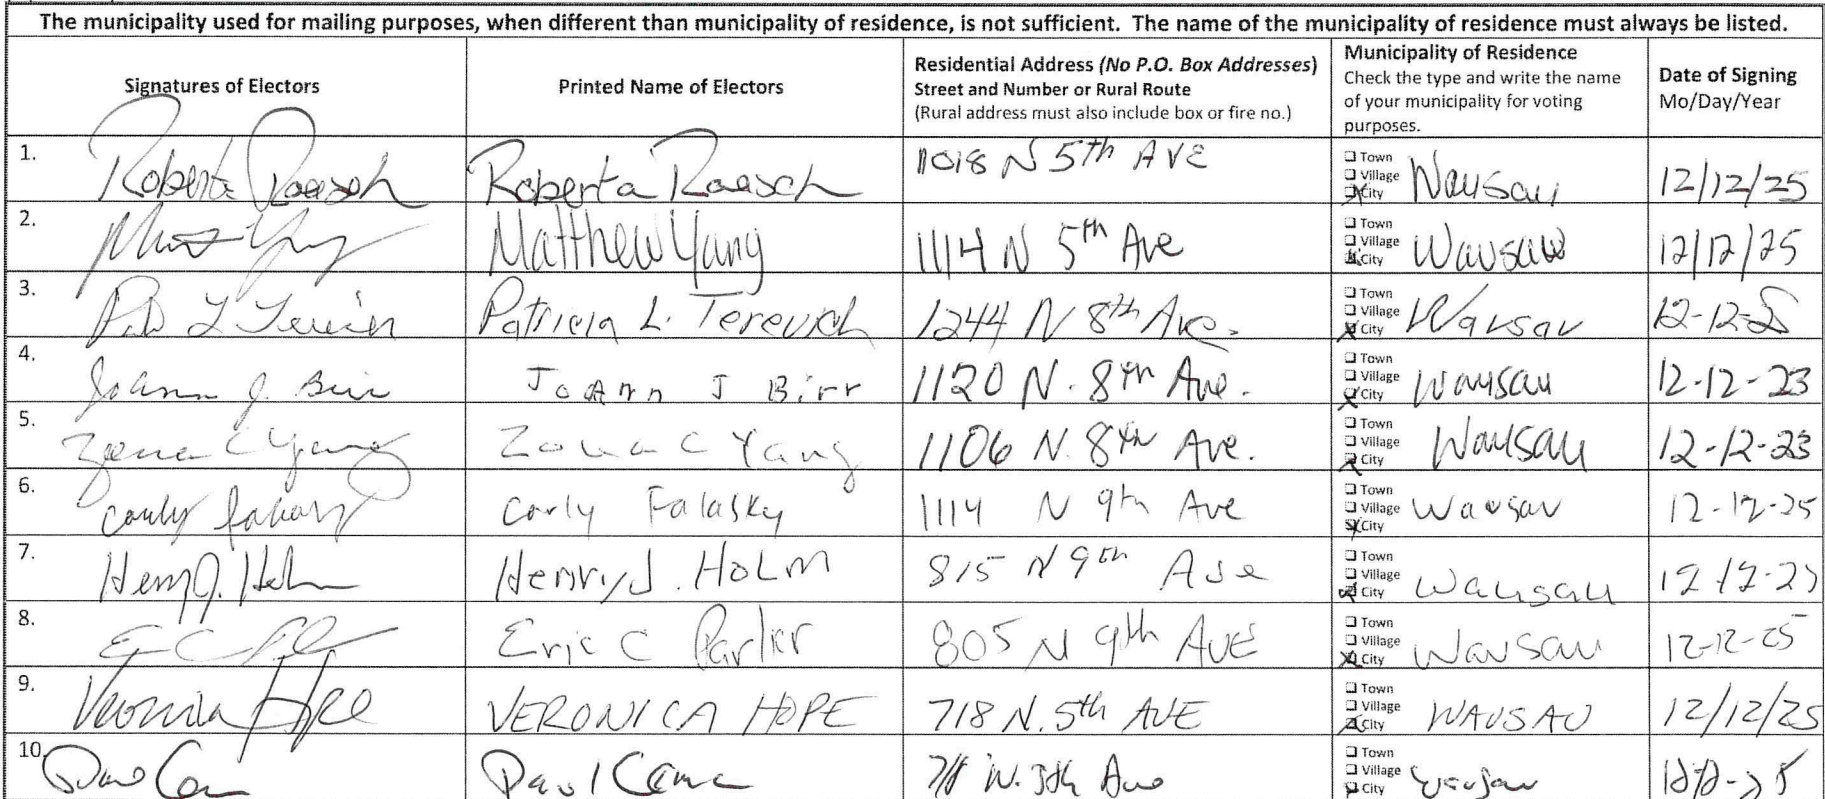 The municipality used for mailing purposes, when different than municipality of residence, is not sufficient. The name of the municipality of residence must always be listed.
Signatures of Electors
Printed Name of Electors
Residential Address (No P.O. Box Addresses)
Street and Number or Rural Route
(Rural address must also include box or fire no.)
Municipality of Residence
Check the type and write the name
of your municipality for voting
purposes.
Date of Signing
Mo/Day/Year
1. Roberta Raasch Roberta Raasch 1018 N 5th AVE Town Village City Wausau 12/12/25
2. Matthew Yang 1114 N 5th Ave Town Village City Wausau 12/12/25
3. Patricia L. Terevich 1244 N 8th Ave. Town Village City Wausau 12-12-25
4. Joann J. Birr JoAnn J Birr 1120 N. 8th Ave. Town Village City Wausau 12-12-23
5. C Yang C Yang 1106 N. 8th Ave. Town Village City Wausau 12-12-23
6. Carly Falasky Carly Falasky 1114 N 9th Ave Town Village City Wausau 12-12-25
7. Henry J. Holm Henry J. HoLm 815 N 9th Ave Town Village City Wausau 12-12-25
8. Eric C 805 N 9th AVE Town Village City Wausau 12-12-25
9. Veronica Hope VERONICA HOPE 718 N. 5th AVE Town Village City WAUSAU 12/12/25
10. Town Village City Wausau